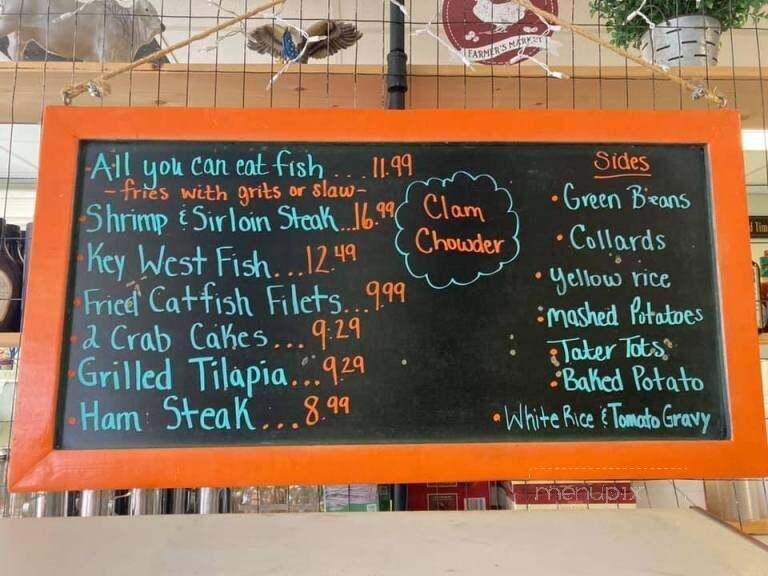 FARMER'S MARKET
All you can eat fish....11.99
-fries with grits or slaw-
Shrimp & Sirloin Steak...16.99
Key West Fish....12.49
Fried Catfish Filets...9.99
2 Crab Cakes....9.29
Grilled Tilapia...9.29
Ham Steak....8.99
Clam
Chowder
Sides
• Green Beans
• Collards
• yellow rice
• mashed Potatoes
• Tater Tots
• Baked Potato
• White Rice & Tomato Gravy
menupix